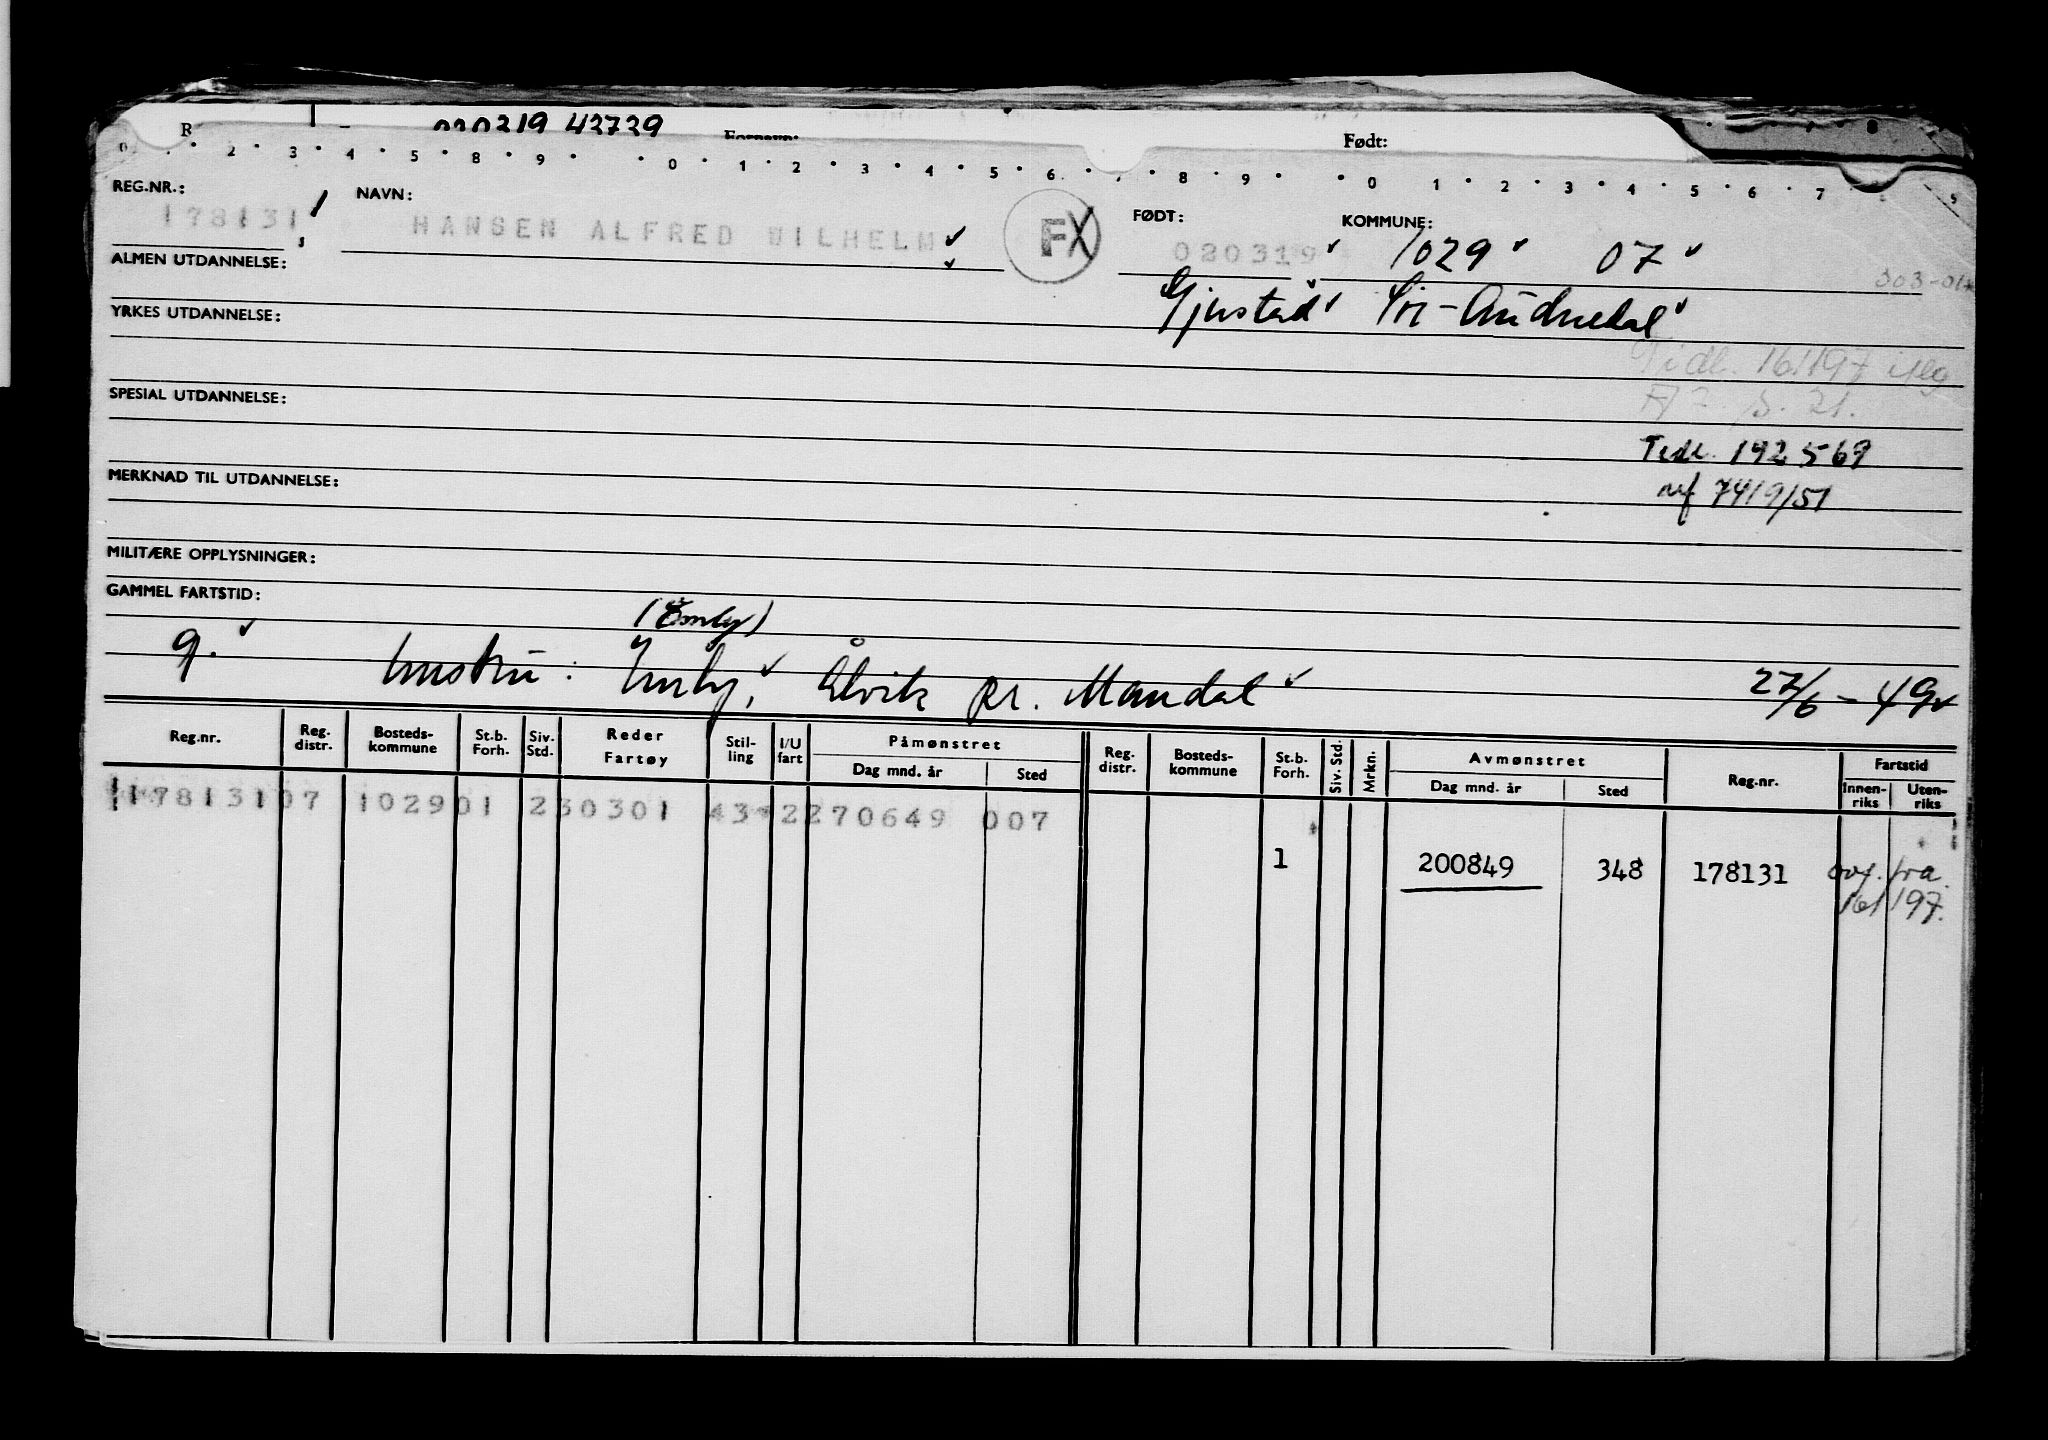 020219 42729
Født:
0 2 3 4 5 8 9 0 1 2 3 4 5 6 8 9 0 1 2 3 4 5 6 7 9
REG.NR.: NAVN: FØDT: KOMMUNE:
178131 HANSEN ALFRED WILHELM FX 020319 1029 07
ALMEN UTDANNELSE: 303-01
Sør-Audnedal
YRKES UTDANNELSE:
Tidl. 161197
S. 21.
SPESIAL UTDANNELSE:
Tidl. 192569
ref 7419/51
MERKNAD TIL UTDANNELSE:
MILITÆRE OPPLYSNINGER:
GAMMEL FARTSTID:
(Emly)
g. hustru: Emly, Ålvik pr. Mandal 27/6-49
Reg.nr. Reg. distr. Bosteds-kommune St.b. Forh. Siv. Std. Reder Fartøy Stil-ling I/U fart Påmønstret Dag mnd. år Sted Reg. distr. Bosteds-kommune St.b. Forh. Siv. Std. Mrkn. Avmønstret Dag mnd. år Sted Reg.nr. Fartstid Innen-riks Uten-riks
178131 07 1029 01 2 30301 43 2 270649 007
1 200849 348 178131 ovf. fra
161197.